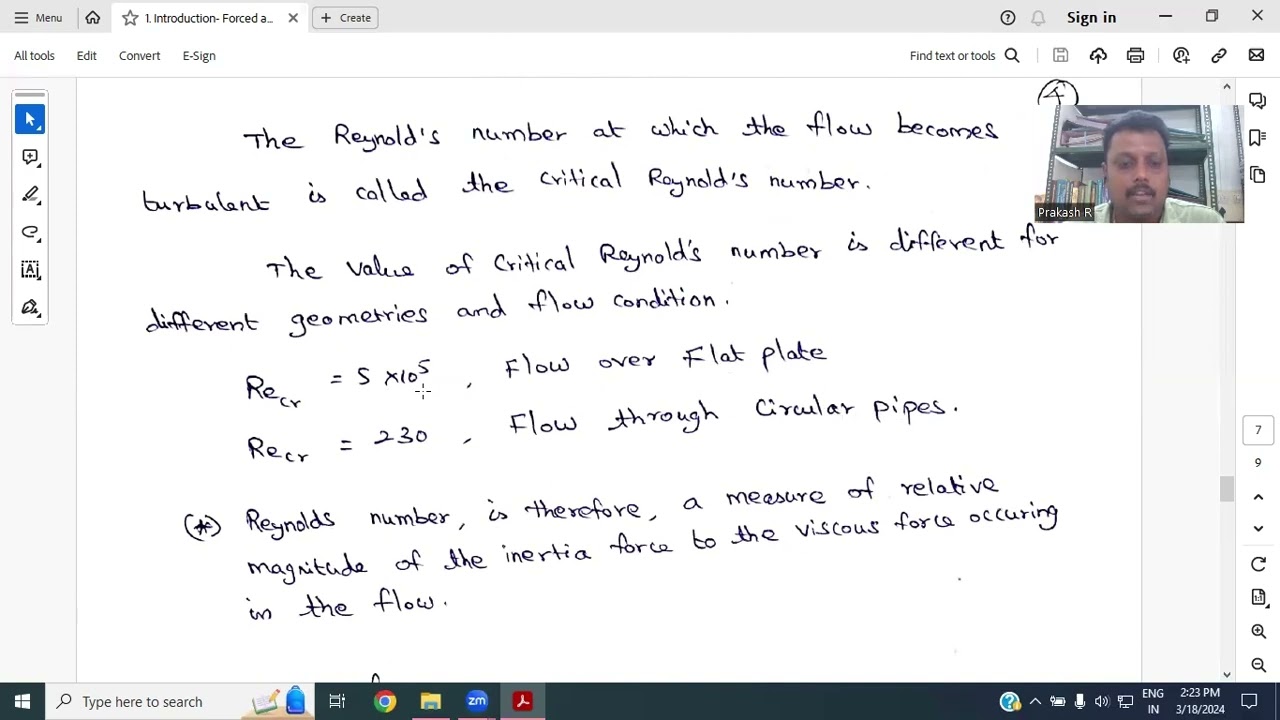 Menu
1. Introduction- Forced a...
Create
Sign in
All tools
Edit
Convert
E-Sign
Find text or tools
4
The Reynold's number at which the flow becomes
turbulent is called the critical Reynold's number.
Prakash R
The value of critical Reynold's number is different for
different geometries and flow condition.
Recr = 5 ×10⁵ , Flow over Flat plate
Recr = 230 , Flow through circular pipes.
(*) Reynolds number, is therefore, a measure of relative
magnitude of the inertia force to the viscous force occuring
in the flow.
7
9
Type here to search
zm
ENG
IN
2:23 PM
3/18/2024